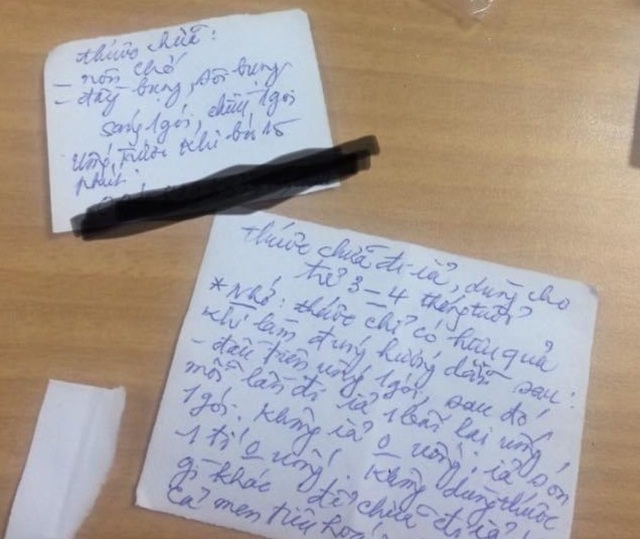 thuốc chữa:
- nôn chớ
- đầy bụng, sôi bụng
sáng 1 gói, chiều 1 gói
uống trước khi bú 15
phút.
thuốc chữa đi ỉa, dùng cho
trẻ 3-4 tháng tuổi
* Nhớ: thuốc chỉ có hiệu quả
khi làm đúng hướng dẫn sau:
- đầu tiên uống 1 gói, sau đó
mỗi lần đi ỉa 1 lần lại uống
1 gói. Không ỉa 0 uống; ỉa són
1 tí 0 uống. Không dùng thuốc
gì khác để chữa đi ỉa
cả men tiêu hoá